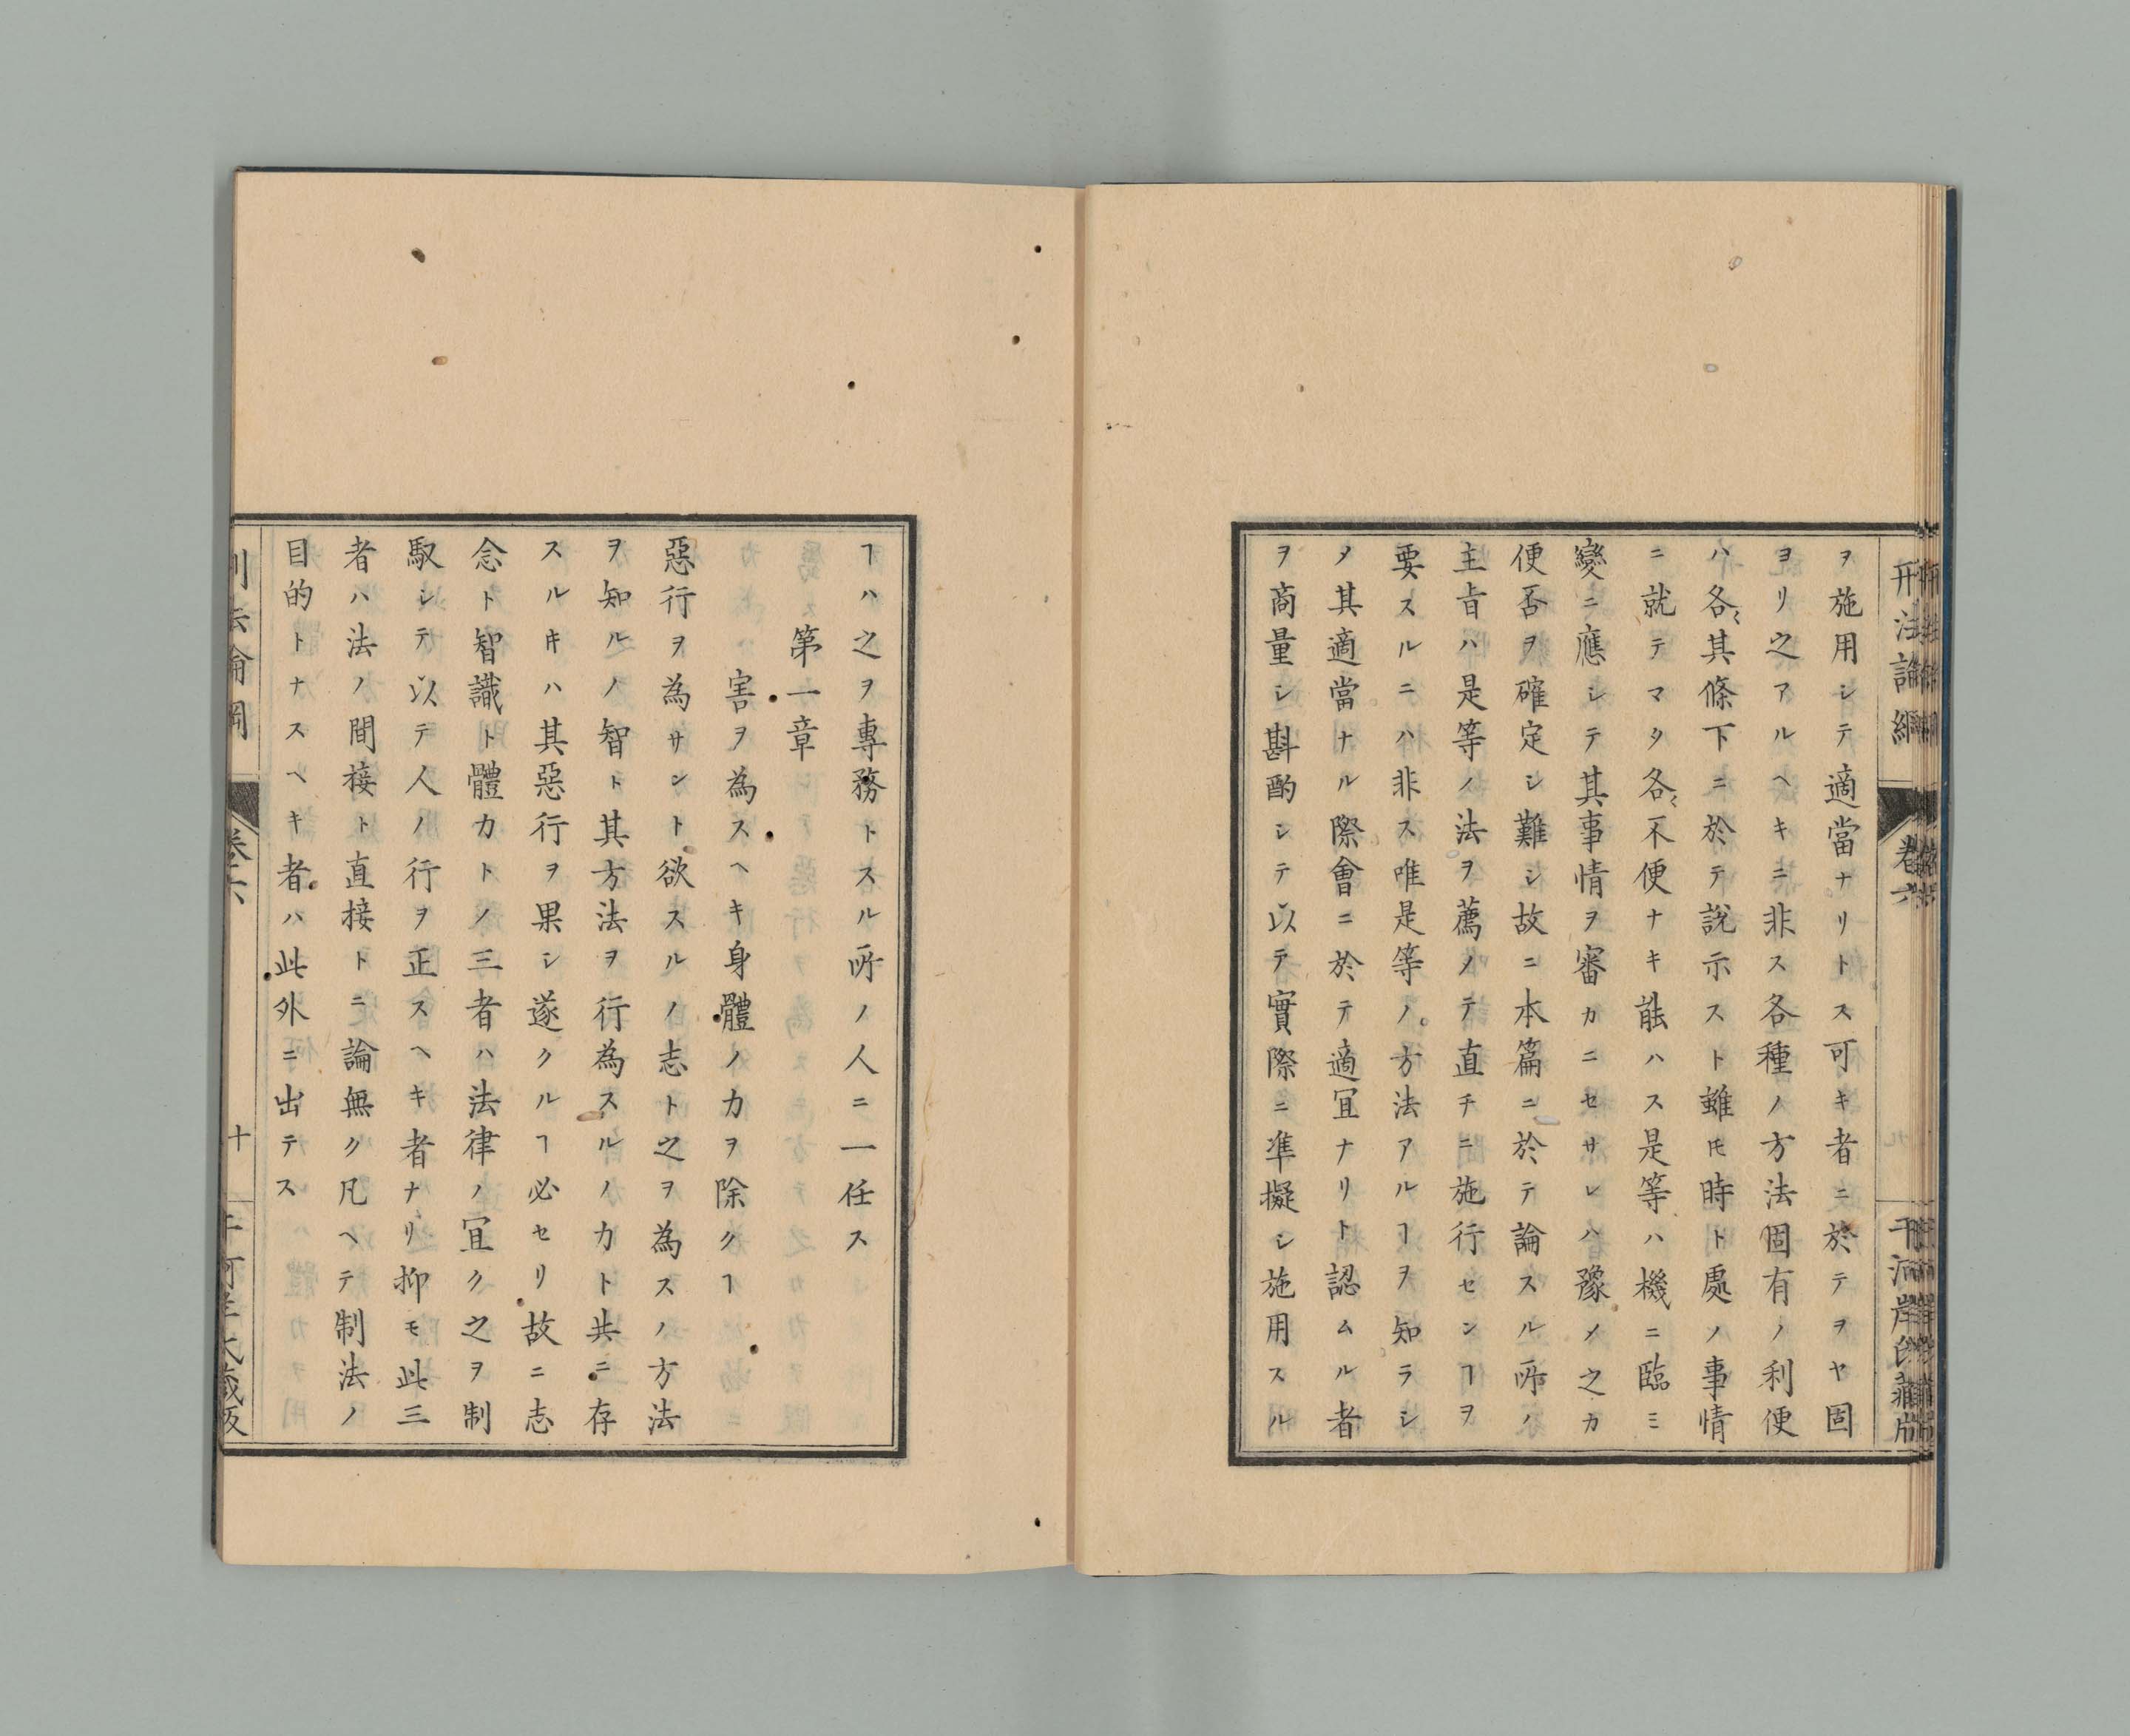 ヲ施用シテ適當ナリトス可キ者ニ於テヲヤ固
ヨリ之アルヘキニ非ス各種ノ方法固有ノ利便
ハ各〻其條下ニ於テ說示スト雖𪜈時ト處ノ事情
ニ就テマタ各〻不便ナキ能ハス是等ハ機ニ臨ミ
變ニ應シテ其事情ヲ審カニセサレハ豫メ之カ
便否ヲ確定シ難シ故ニ本篇ニ於テ論スル所ノ
主旨ハ是等ノ法ヲ薦メテ直チニ施行センヿヲ
要スルニハ非ス唯是等ノ方法アルヿヲ知ラシ
メ其適當ナル際會ニ於テ適宜ナリト認ムル者
ヲ商量シ斟酌シテ以テ實際ニ凖擬シ施用スル
ヿハ之ヲ專務トスル所ノ人ニ一任ス
第一章
害ヲ為スヘキ身體ノ力ヲ除クヿ
惡行ヲ為サント欲スルノ志ト之ヲ為スノ方法
ヲ知ルノ智ト其方法ヲ行為スルノ力ト共ニ存
スル𪜈ハ其惡行ヲ果シ遂クルヿ必セリ故ニ志
念ト智識ト體力トノ三者ハ法律ノ宜ク之ヲ制
馭シテ以テ人ノ行ヲ正スヘキ者ナリ抑モ此三
者ハ法ノ間接ト直接トニ論無ク凡ヘテ制法ノ
目的トナスヘキ者ハ此外ニ出テス
刑法論綱
卷六
十